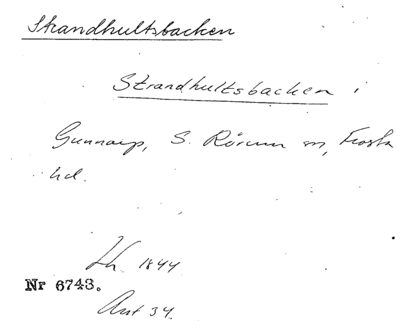 Strandhultsbacken
Strandhultsbacken i
Gunnarp, S. Rörum m, Frosta
hd.
Lh. 1844
Nr 6743.
Ant 34.